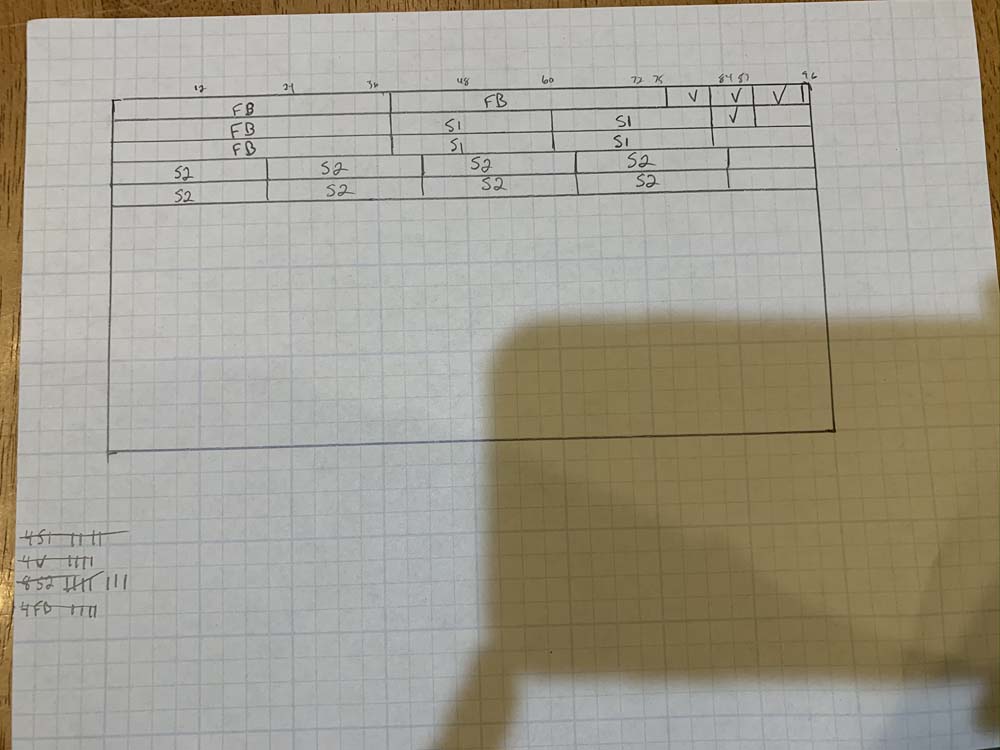 12 24 36 48 60 72 75 84 87 96
FB FB V V V
FB S1 S1 V
FB S1 S1
S2 S2 S2 S2
S2 S2 S2 S2
4 S1 || ||
4 V ||||
8 S2 |||| |||
4 FB ||||